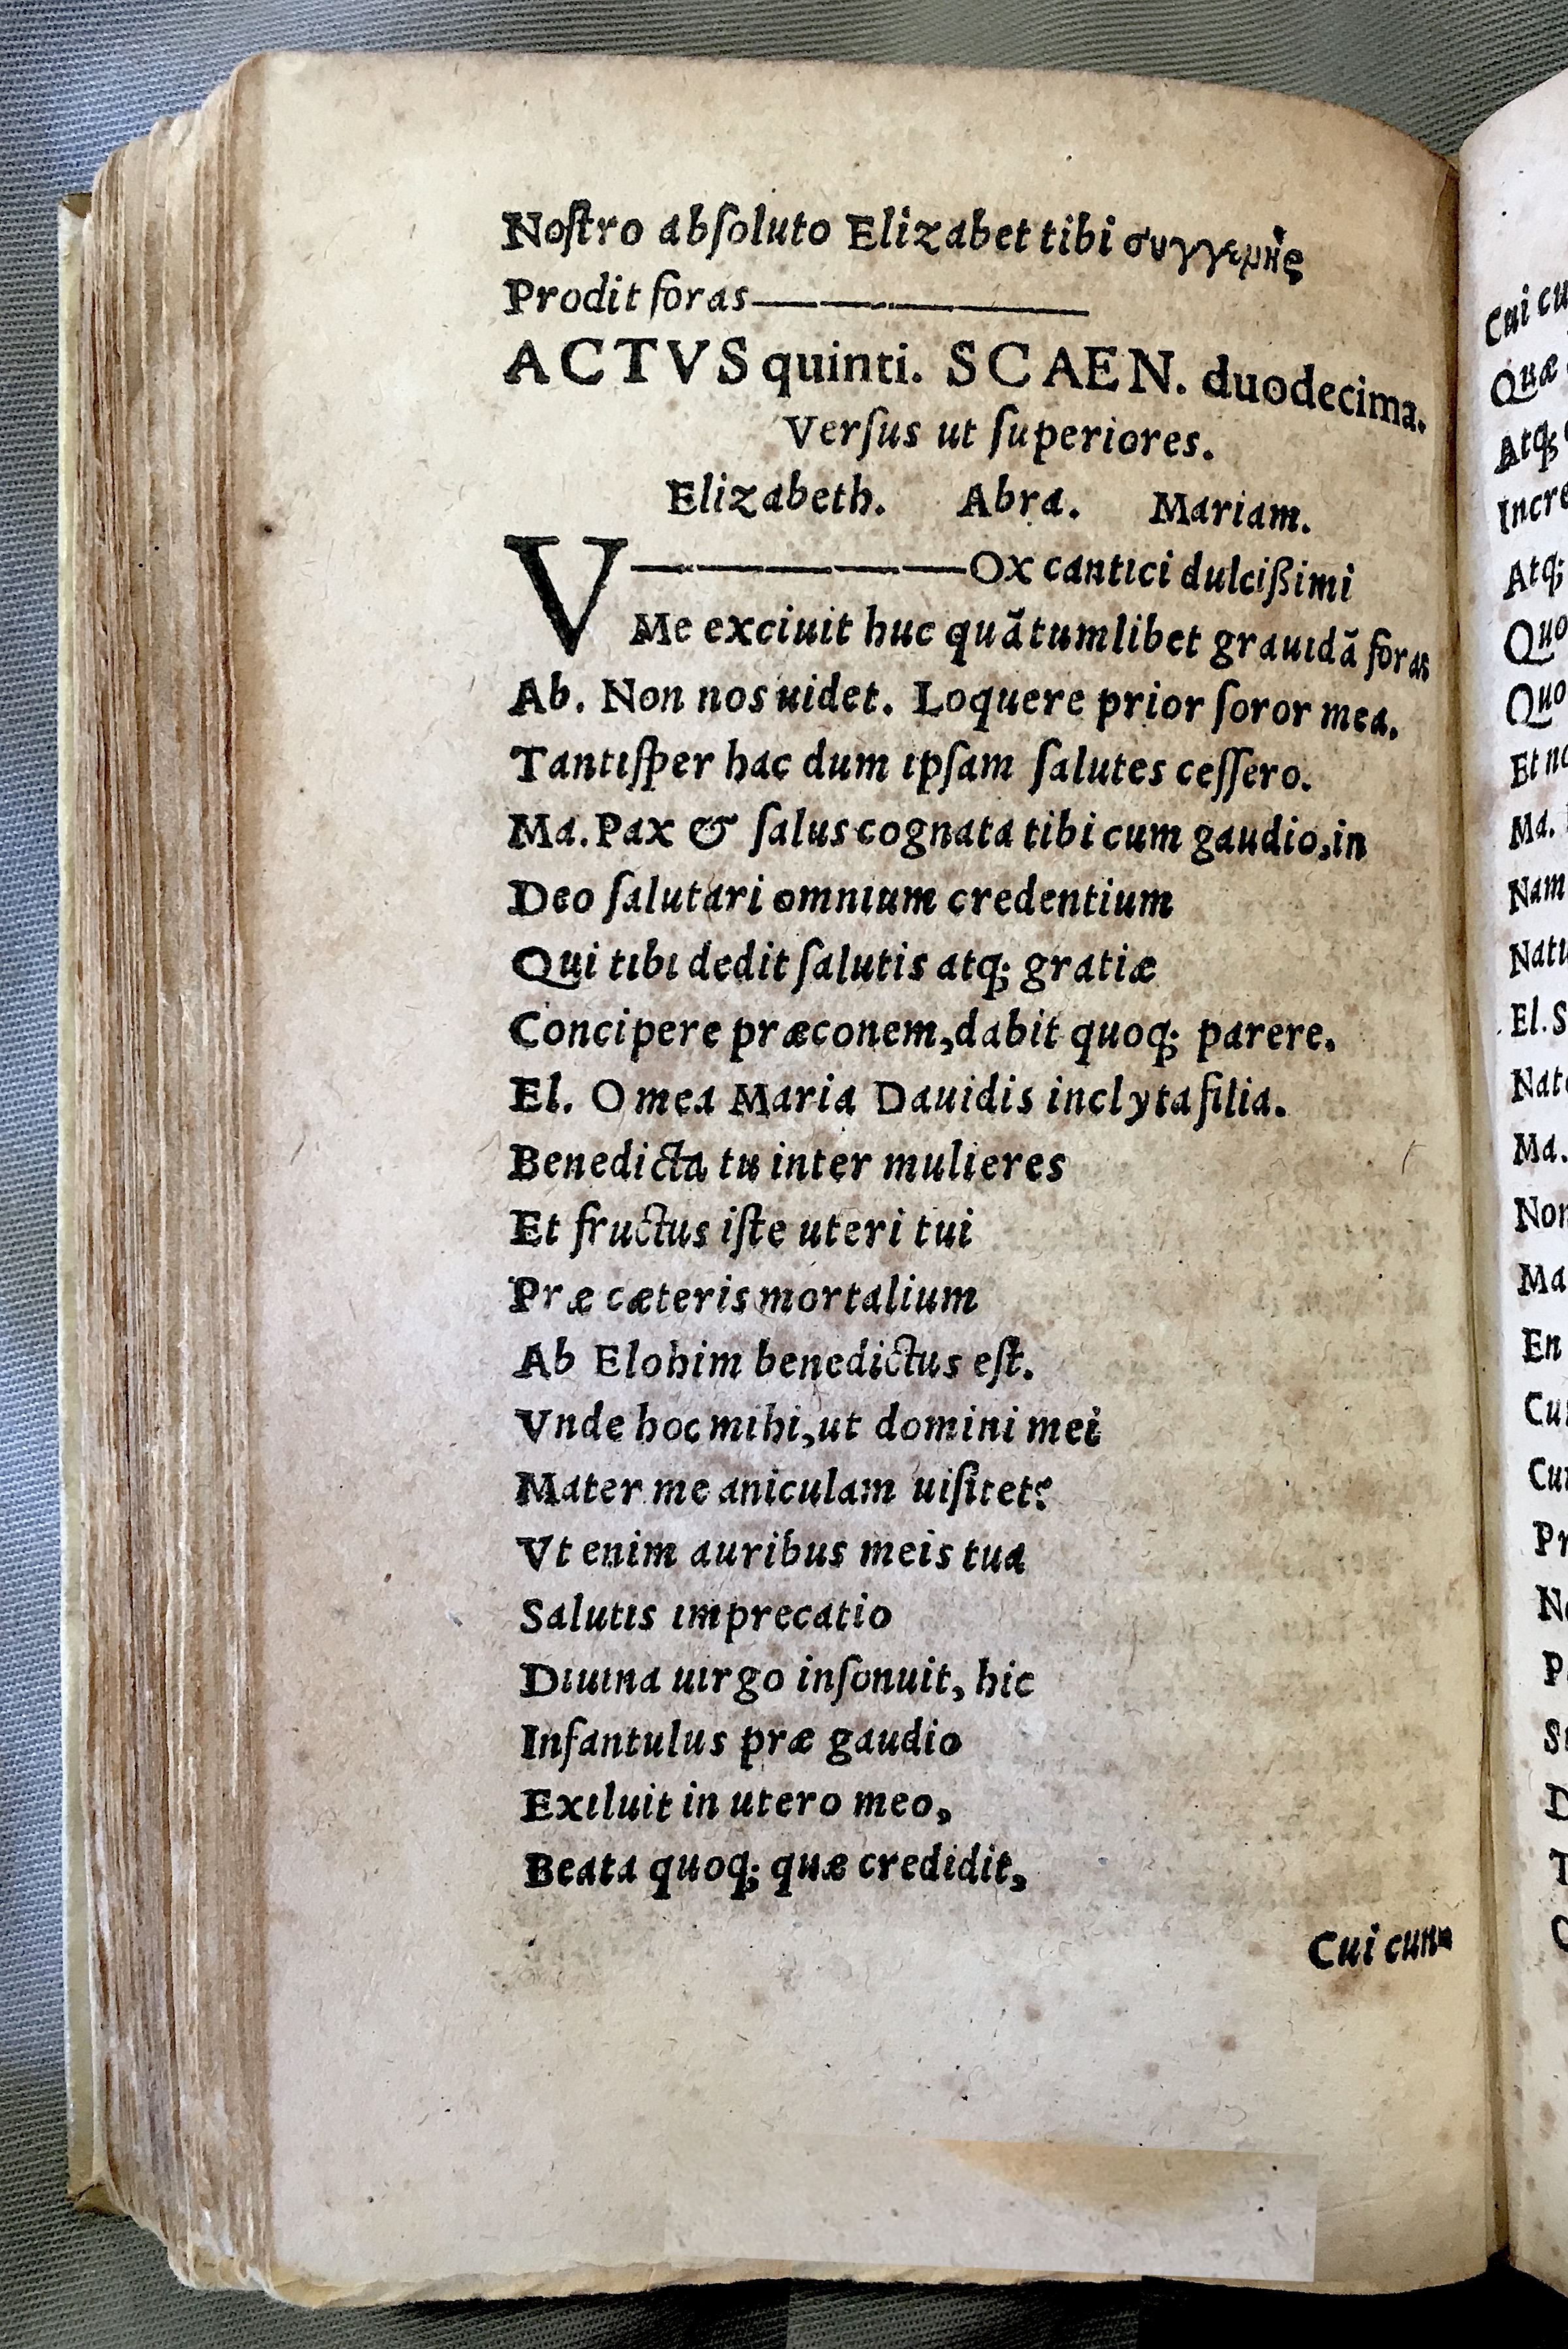 Noſtro abſoluto Elizabet tibi συγγενὴς
Prodit foras
ACTVS quinti. SCAEN. duodecima.
Verſus ut ſuperiores.
Elizabeth. Abra. Mariam.
VOx cantici dulcißimi
Me exciuit huc quãtumlibet grauidã foras
Ab. Non nos uidet. Loquere prior ſoror mea.
Tantiſper hac dum ipſam ſalutes ceſſero.
Ma. Pax & ſalus cognata tibi cum gaudio, in
Deo ſalutari omnium credentium
Qui tibi dedit ſalutis atq; gratiæ
Concipere præconem, dabit quoq; parere.
El. O mea Maria Dauidis inclyta filia.
Benedicta tu inter mulieres
Et fructus iſte uteri tui
Præ cæteris mortalium
Ab Elohim benedictus eſt.
Vnde hoc mihi, ut domini mei
Mater me aniculam uiſitet?
Vt enim auribus meis tua
Salutis imprecatio
Diuina uirgo inſonuit, hic
Infantulus præ gaudio
Exiluit in utero meo,
Beata quoq; quæ credidit,
Cui cun-
Cui cu
Quæ
Atq;
Incre
Atq;
Quo
Quo
Et no
Ma.
Nam
Natu
El. S
Nat
Ma.
Non
Ma
En
Cu
Cu
Pr